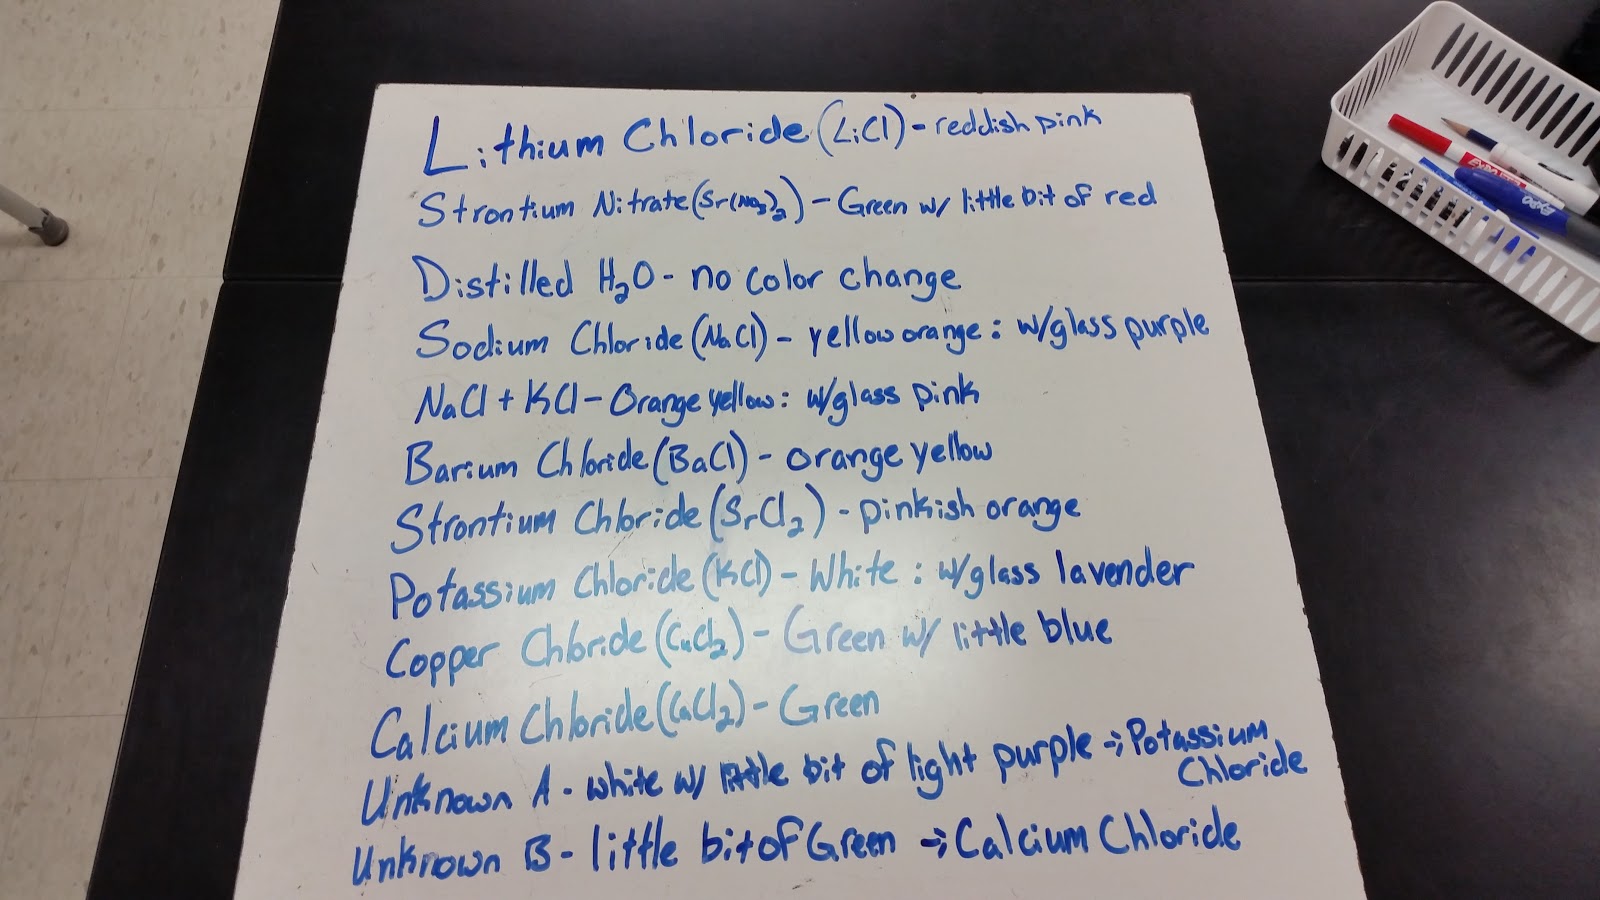 Lithium Chloride (LiCl) - reddish pink
Strontium Nitrate (Sr(NO₃)₂) - Green w/ little bit of red
Distilled H₂O - no color change
Sodium Chloride (NaCl) - yellow orange : w/glass purple
NaCl + KCl - Orange yellow : w/glass pink
Barium Chloride (BaCl) - orange yellow
Strontium Chloride (SrCl₂) - pinkish orange
Potassium Chloride (KCl) - White : w/glass lavender
Copper Chloride (CuCl₂) - Green w/ little blue
Calcium Chloride (CaCl₂) - Green
Unknown A - white w/ little bit of light purple → Potassium
Chloride
Unknown B - little bit of Green → Calcium Chloride
EXPO
EXPO